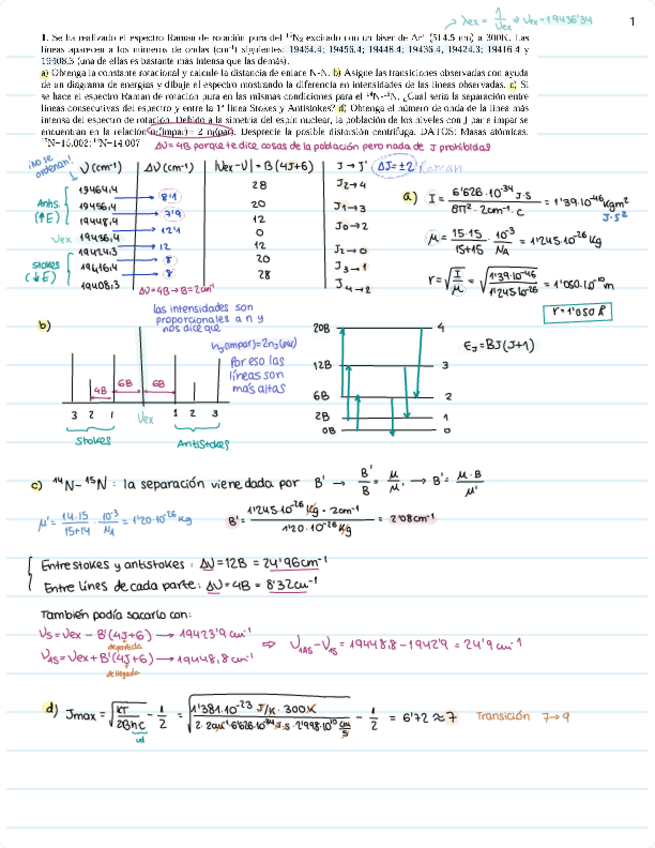 λex = 1/νex → νex = 19436'34
1
1. Se ha realizado el espectro Raman de rotación pura del ¹⁵N₂ excitado con un láser de Ar⁺ (514.5 nm) a 300K. Las
líneas aparecen a los números de ondas (cm⁻¹) siguientes: 19464.4; 19456.4; 19448.4; 19436.4; 19424.3; 19416.4 y
19408.3 (una de ellas es bastante más intensa que las demás).
a) Obtenga la constante rotacional y calcule la distancia de enlace N-N. b) Asigne las transiciones observadas con ayuda
de un diagrama de energías y dibuje el espectro mostrando la diferencia en intensidades de las líneas observadas. c) Si
se hace el espectro Raman de rotación pura en las mismas condiciones para el ¹⁴N-¹⁵N, ¿Cuál sería la separación entre
líneas consecutivas del espectro y entre la 1ª línea Stokes y Antistokes? d) Obtenga el número de onda de la línea más
intensa del espectro de rotación. Debido a la simetría del espín nuclear, la población de los niveles con J par e impar se
encuentran en la relación n(impar)= 2 n(par). Desprecie la posible distorsión centrífuga. DATOS: Masas atómicas.
¹⁵N=15.002; ¹⁴N=14.007
ΔU = 4B porque te dice cosas de la población pero nada de J prohibidas
¡No se ordenan!
ν(cm⁻¹) Δν(cm⁻¹) |νex-ν| = B(4J+6) J→J' ΔJ=±2 Raman
19464,4 28 J2→4
Antis. (↑E) 19456,4 8'1 20 J1→3
19448,4 7'9 12 J0→2
νex 19436,4 12'4 0
19424,3 12 12 J2→0
Stokes (↓E) 19416,4 8 20 J3→1
19408,3 8 28 J4→2
Δν=4B→B=2cm⁻¹
a) I = 6'626·10⁻³⁴ J·S / 8π²·2cm⁻¹·c = 1'39·10⁻⁴⁶ Kgm²
J·S²
μ = 15·15/15+15 · 10⁻³/NA = 1'245·10⁻²⁶ Kg
r = √I/μ = √1'39·10⁻⁴⁶/1'245·10⁻²⁶ = 1'050·10⁻¹⁰ m
r = 1'050 Å
b)
las intensidades son
proporcionales a n y
nos dice que
nJ(impar)=2nJ(par)
Por eso las
líneas son
más altas
4B 6B 6B
3 2 1 νex 1 2 3
Stokes AntiStokes
20B 4
12B 3
6B 2
2B 1
0B 0
EJ=BJ(J+1)
c) ¹⁴N-¹⁵N : la separación viene dada por B' → B'/B = μ/μ' → B' = μ·B/μ'
μ' = 14·15/15+14 · 10⁻³/NA = 1'20·10⁻²⁶ Kg
B' = 1'245·10⁻²⁶ Kg · 2cm⁻¹ / 1'20·10⁻²⁶ Kg = 2'08cm⁻¹
Entre stokes y antistokes : Δν = 12B = 24'96cm⁻¹
Entre línes de cada parte: Δν = 4B = 8'32cm⁻¹
También podía sacarlo con:
νS = νex - B'(4J+6) → 19423'9 cm⁻¹
departida
νAS = νex + B'(4J+6) → 19448,8 cm⁻¹
de llegada
⇒ ν1AS - ν1S = 19448,8 - 1942'9 = 24'9 cm⁻¹
d) Jmax = √KT/2Bhc - 1/2 = √1'381·10⁻²³ J/K · 300K / 2·2cm⁻¹·6'626·10⁻³⁴ J·S·2'998·10¹⁰ cm/s - 1/2 = 6'72 ≈ 7 Transición 7→9